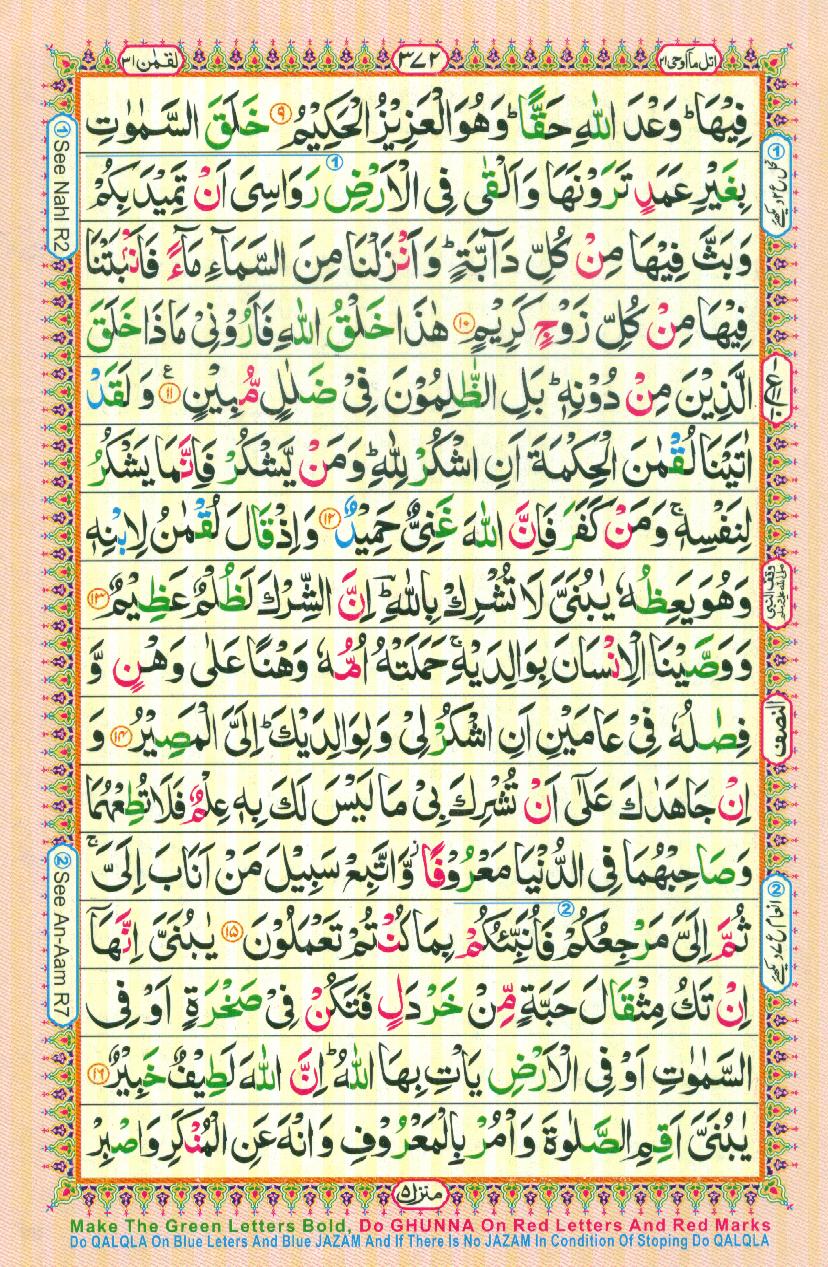 اتل مآاوحی۲۱
۳۷۲
لقمٰن۳۱
فِیْهَا ؕ وَعْدَ اللّٰهِ حَقًّا ؕ وَهُوَ الْعَزِیْزُ الْحَكِیْمُ ۹ خَلَقَ السَّمٰوٰتِ
بِغَیْرِ عَمَدٍ تَرَوْنَهَا وَاَلْقٰی فِی الْاَرْضِ رَوَاسِیَ اَنْ تَمِیْدَ بِكُمْ
وَبَثَّ فِیْهَا مِنْ كُلِّ دَآبَّةٍ ؕ وَاَنْزَلْنَا مِنَ السَّمَآءِ مَآءً فَاَنْۢبَتْنَا
فِیْهَا مِنْ كُلِّ زَوْجٍ كَرِیْمٍ ۱۰ هٰذَا خَلْقُ اللّٰهِ فَاَرُوْنِیْ مَاذَا خَلَقَ
الَّذِیْنَ مِنْ دُوْنِهٖ ؕ بَلِ الظّٰلِمُوْنَ فِیْ ضَلٰلٍ مُّبِیْنٍ ۱۱ ع وَ لَقَدْ
اٰتَیْنَا لُقْمٰنَ الْحِكْمَةَ اَنِ اشْكُرْ لِلّٰهِ ؕ وَمَنْ یَّشْكُرْ فَاِنَّمَا یَشْكُرُ
لِنَفْسِهٖ ۚ وَمَنْ كَفَرَ فَاِنَّ اللّٰهَ غَنِیٌّ حَمِیْدٌ ۱۲ وَاِذْ قَالَ لُقْمٰنُ لِابْنِهٖ
وَهُوَ یَعِظُهٗ یٰبُنَیَّ لَا تُشْرِكْ بِاللّٰهِ ؔؕ اِنَّ الشِّرْكَ لَظُلْمٌ عَظِیْمٌ ۱۳
وَوَصَّیْنَا الْاِنْسَانَ بِوَالِدَیْهِ ۚ حَمَلَتْهُ اُمُّهٗ وَهْنًا عَلٰی وَهْنٍ وَّ
فِصٰلُهٗ فِیْ عَامَیْنِ اَنِ اشْكُرْ لِیْ وَلِوَالِدَیْكَ ؕ اِلَیَّ الْمَصِیْرُ ۱۴ وَ
اِنْ جَاهَدٰكَ عَلٰۤی اَنْ تُشْرِكَ بِیْ مَا لَیْسَ لَكَ بِهٖ عِلْمٌ فَلَا تُطِعْهُمَا
وَصَاحِبْهُمَا فِی الدُّنْیَا مَعْرُوْفًا ؗ وَّاتَّبِعْ سَبِیْلَ مَنْ اَنَابَ اِلَیَّ ۚ
ثُمَّ اِلَیَّ مَرْجِعُكُمْ فَاُنَبِّئُكُمْ بِمَا كُنْتُمْ تَعْمَلُوْنَ ۱۵ یٰبُنَیَّ اِنَّهَاۤ
اِنْ تَكُ مِثْقَالَ حَبَّةٍ مِّنْ خَرْدَلٍ فَتَكُنْ فِیْ صَخْرَةٍ اَوْ فِی
السَّمٰوٰتِ اَوْ فِی الْاَرْضِ یَاْتِ بِهَا اللّٰهُ ؕ اِنَّ اللّٰهَ لَطِیْفٌ خَبِیْرٌ ۱۶
یٰبُنَیَّ اَقِمِ الصَّلٰوةَ وَاْمُرْ بِالْمَعْرُوْفِ وَانْهَ عَنِ الْمُنْكَرِ وَاصْبِرْ
النصف
① See Nahl R2
② See An-Aam R7
منزل۵
Make The Green Letters Bold, Do GHUNNA On Red Letters And Red Marks
Do QALQLA On Blue Leters And Blue JAZAM And If There Is No JAZAM In Condition Of Stoping Do QALQLA